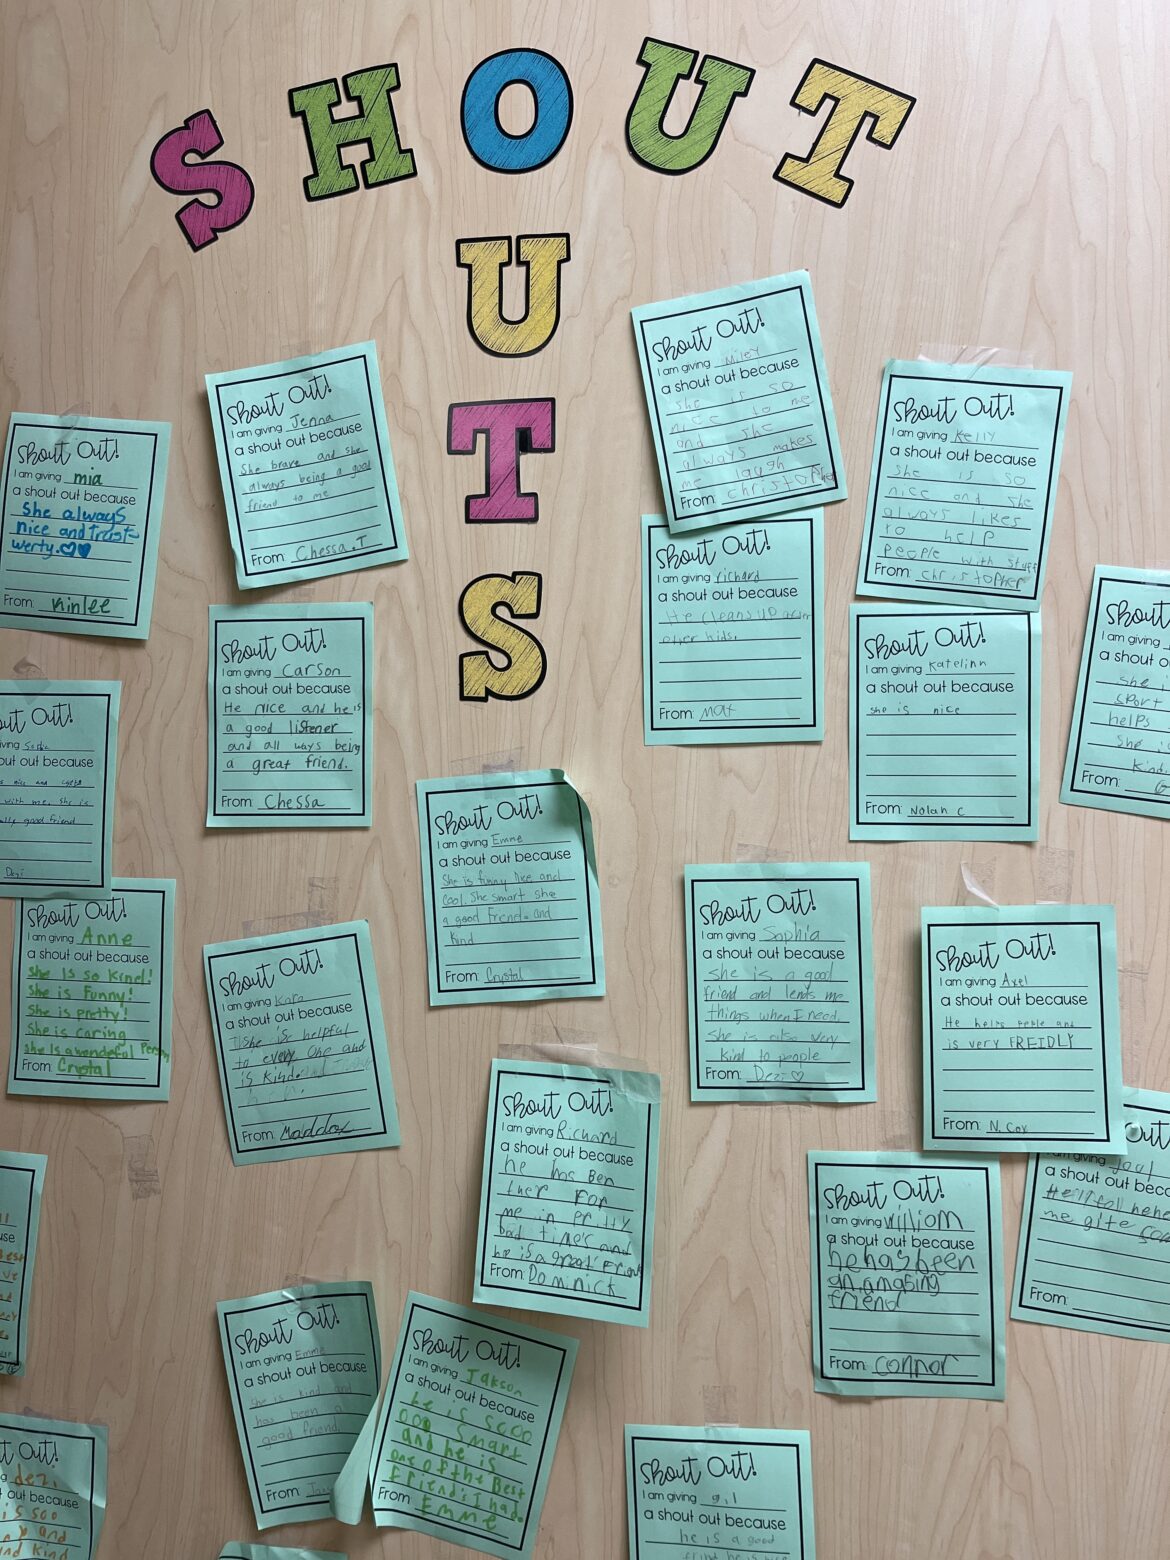 SHOUT
OUTS
Shout Out!
I am giving mia
a shout out because
She always
nice and trust-
werty.
From: Kinlee
Shout Out!
I am giving Jenna
a shout out because
She brave and she
always being a good
friend to me
From: Chessa.T
Shout Out!
I am giving Miley
a shout out because
she is so
nice to me
and she
always makes
me laugh
From: christopher
Shout Out!
I am giving Kelly
a shout out because
she is so
nice and she
always likes
to help
people with stuff
From: christopher
Shout Out!
I am giving Carson
a shout out because
He nice and he is
a good listener
and all ways being
a great friend.
From: Chessa
Shout Out!
I am giving richard
a shout out because
He cleans up after
other kids.
From: Mat
Shout Out!
I am giving Katelinn
a shout out because
she is nice
From: Nolan C
Shout
I am giving
a shou
she i
sport
helps
she i
kind.
From: G
out Out!
ving
out because
nice and
with me. she is
lly good friend
Dezi
Shout Out!
I am giving Emme
a shout out because
She is funny nice and
cool. She smart she
a good friend. and
kind
From: Crystal
Shout Out!
I am giving Anne
a shout out because
She is so kind!
She is funny!
She is pretty!
She is caring
She is a wondeful Person
From: Crystal
Shout Out!
I am giving Kara
a shout out because
She is helpful
to every one and
is kind
From: Maddox
Shout Out!
I am giving Sophia
a shout out because
she is a good
friend and lends me
things when I need.
she is also very
kind to people
From: Dezi ♡
Shout Out!
I am giving Axel
a shout out because
He helps peple and
is very FREIDLY
From: N. Cox
Shout Out!
I am giving Richard
a shout out because
he has Ben
ther For
me in Pritty
bad times and
he is a great Friend
From: Dominick
Shout Out!
I am giving William
a shout out because
he has been
an amasing
friend
From: connor
Out
am giving
a shout out beca
me
From:
Shout Out!
I am giving Emme
a shout out because
she is kind and
has been a
good friend.
From:
Shout Out!
I am giving Jakson
a shout out because
he is sooo
ooo smart
and he is
one of the Best
Friend's I had.
From: Emme
Shout Out!
I am giving
a shout out because
he is a good
Out!
dezi
out because
is soo
and
and kind